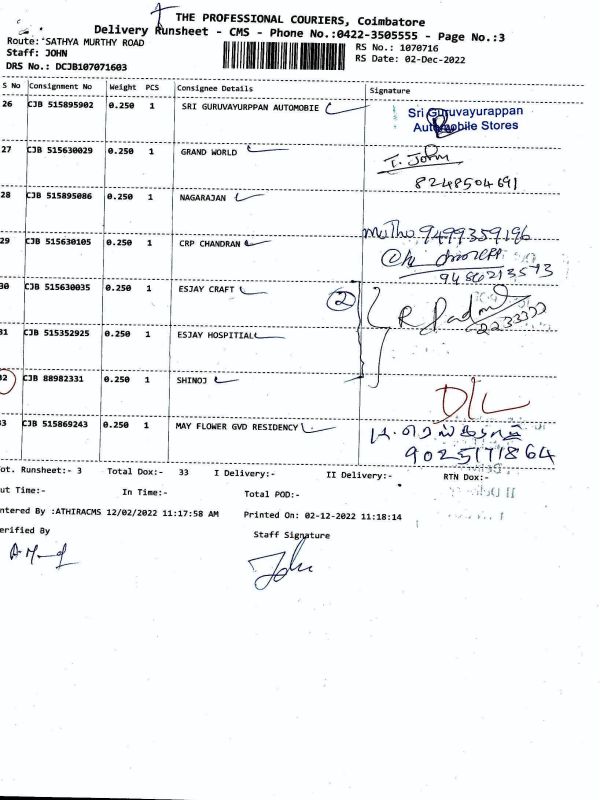 THE PROFESSIONAL COURIERS, Coimbatore
Delivery Runsheet - CMS - Phone No.:0422-3505555 - Page No.:3
Route: SATHYA MURTHY ROAD
Staff: JOHN
DRS No.: DCJB107071603
RS No.: 1070716
RS Date: 02-Dec-2022
S No Consignment No Weight PCS Consignee Details Signature
26 CJB 515895902 0.250 1 SRI GURUVAYURPPAN AUTOMOBIE
Sri Guruvayurappan
Automobile Stores
27 CJB 515630029 0.250 1 GRAND WORLD
T. John
8248504691
28 CJB 515895086 0.250 1 NAGARAJAN
Muthu 9499359196
29 CJB 515630105 0.250 1 CRP CHANDRAN
30 CJB 515630035 0.250 1 ESJAY CRAFT
2
31 CJB 515352925 0.250 1 ESJAY HOSPITIAL
32 CJB 88982331 0.250 1 SHINOJ
D/L
33 CJB 515869243 0.250 1 MAY FLOWER GVD RESIDENCY
9025171864
ot. Runsheet:- 3 Total Dox:- 33 I Delivery:- II Delivery:- RTN Dox:-
ut Time:- In Time:- Total POD:-
ntered By :ATHIRACMS 12/02/2022 11:17:58 AM Printed On: 02-12-2022 11:18:14
erified By Staff Signature
John